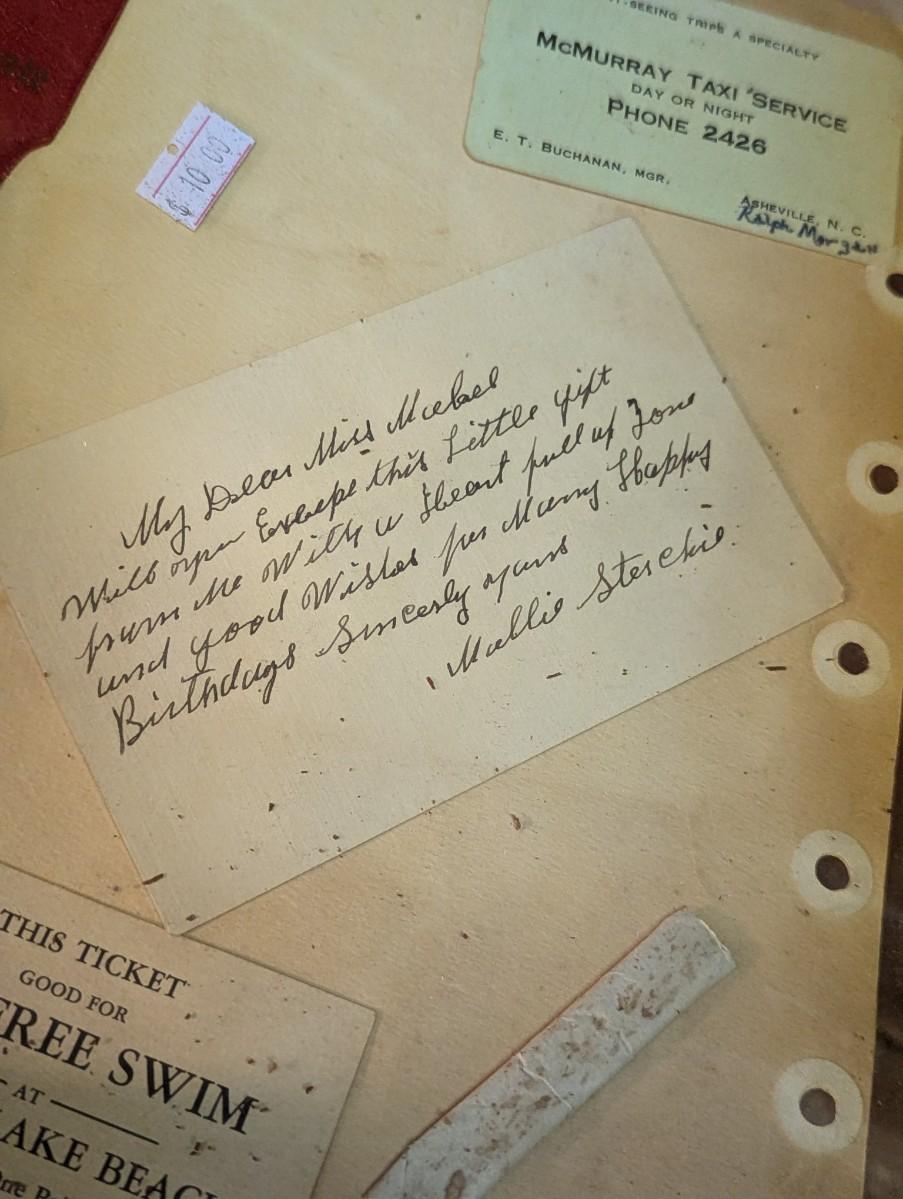 -SEEING TRIPS A SPECIALTY
MCMURRAY TAXI SERVICE
DAY OR NIGHT
PHONE 2426
E. T. BUCHANAN, MGR.
ASHEVILLE, N. C.
Ralph Morgan
$ 10.00
My Dear Miss Mabel
Will you Except this Little gift
from Me With a Heart full of Love
and good Wishes for Many Happy
Birthdays Sincerly yours
Mallie Sterchie.
THIS TICKET
GOOD FOR
FREE SWIM
AT
LAKE BEACH